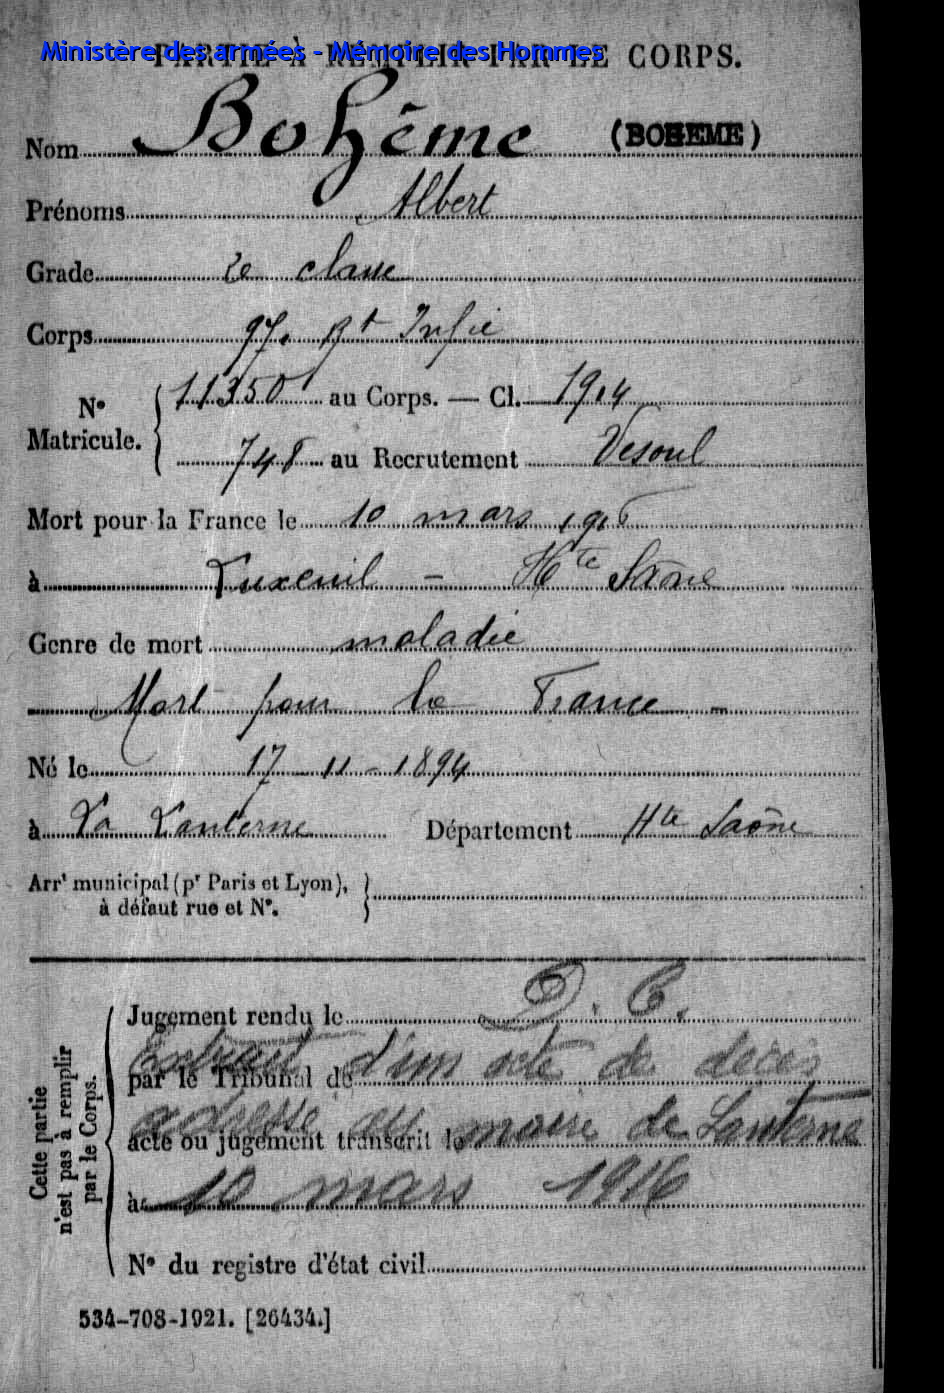 Ministère des armées - Mémoire des Hommes
PARTIE À REMPLIR PAR LE CORPS.
Nom Bohême (BOHEME)
Prénoms Albert
Grade 2e classe
Corps 97e Rt Infie
N° Matricule. 11350 au Corps. — Cl. 1914
748 au Recrutement Vesoul
Mort pour la France le 10 mars 1916
à Luxeuil - Hte Saône
Genre de mort maladie
Mort pour la France -
Né le 17-11-1894
à La Lanterne Département Hte Saône
Arrt municipal (pr Paris et Lyon),
à défaut rue et N°.
Cette partie
n'est pas à remplir
par le Corps.
Jugement rendu le D. C.
Extrait d'un acte de décès
par le Tribunal de
adressé au maire de Lanterne
acte ou jugement transcrit le
à 10 mars 1916
N° du registre d'état civil
534-708-1921. [26434.]